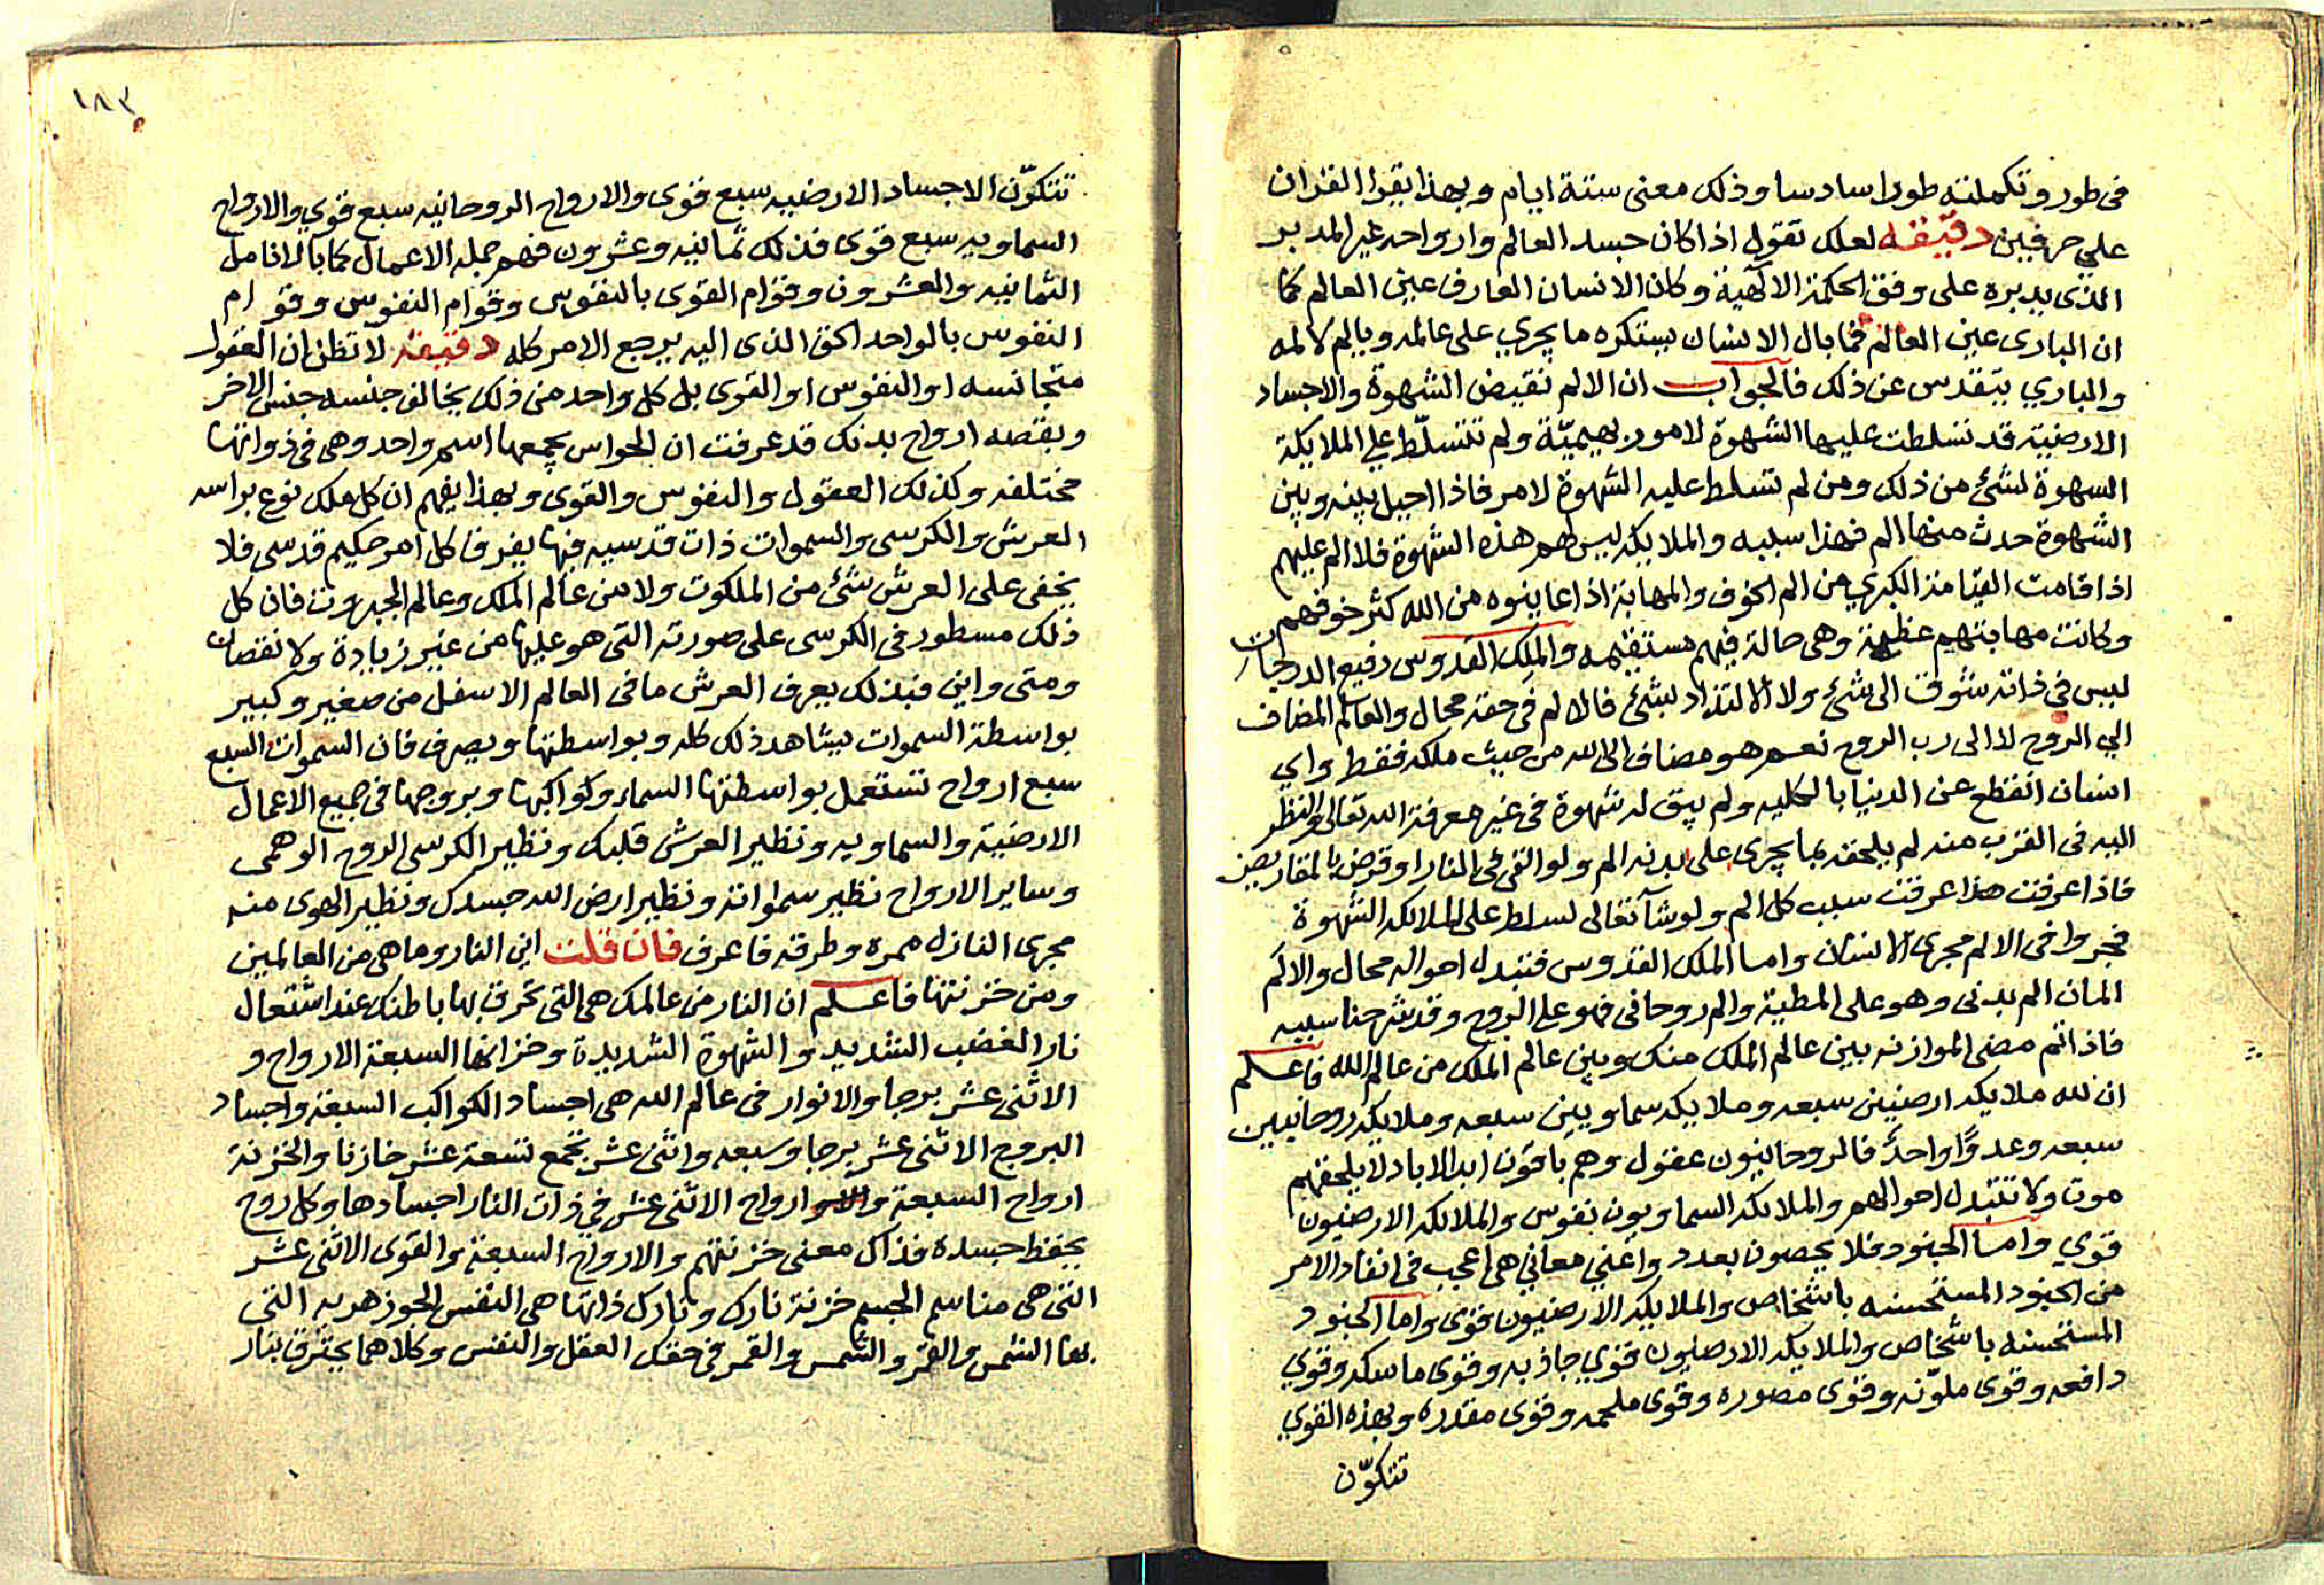 في طور وتكملته طورا سادسا وذلك معنى ستة ايام وبهذا يقرا القران
على حرفين دقيقه لعلك تقول اذا كان جسد العالم وارواحه غير المدبر
الذي يدبره على وفق الحكمة الالهية وكان الانسان العارف عين العالم كما
ان الباري عين العالم فما بال الانسان يستكره ما يجري على عالمه ويالم لالمه
والباري يتقدس عن ذلك فالجواب ان الالم نقيض الشهوة والاجساد
الارضية قد تسلطت عليها الشهوة لامور بهيميّة ولم تتسلّط على الملايكة
الشهوة لشئ من ذلك ومن لم تسلط عليه الشهوة لامر فاذا احيل بينه وبين
الشهوة حدث منها الم فهذا سببه والملايكه ليس لهم هذه الشهوة فلا الم عليهم
اذا قامت القيامة الكبرى من الم الخوف والمهابة اذا عاينوه من الله كثر خوفهم
وكانت مهابتهم عظيمة وهي حالة فيهم مستقيمه والملك القدوس رفيع الدرجات
ليس في ذاته شوق الى شئ ولا الالتذاذ بشئ فالالم في حقه محال والعالم المضاف
الى الروح لا الى رب الروح نعم هو مضاف الى الله من حيث ملكه فقط واي
انسان انقطع عن الدنيا بالكليه ولم يبق له شهوة في غير معرفة الله تعالى والنظر
اليه في القرب منه لم يلحقه بما يجرى على بدنه الم ولو القي في النار او قرض بالمقاريض
فاذا عرفت هذا عرفت سبب كل الم ولو شآ تعالى لسلط على الملايكه الشهوة
فجروا في الالم مجرى الانسان واما الملك القدوس فتبدل احواله محال والالم
المان الم بدني وهو على المطية والم روحاني فهو على الروح وقد شرحنا سببه
فاذا تم مضى الموازنه بين عالم الملك منك وبين عالم الملك من عالم الله فاعلم
ان لله ملايكه ارضيين سبعه وملايكه سماويين سبعه وملايكه روحانيين
سبعه وعدوًّا واحدً فالروحانيون عقول وهم باقون ابد الاباد لا يلحقهم
موت ولا تتبدل احوالهم والملايكه السماويون نفوس والملايكه الارضيون
قوي واما الجنود فلا يحصون بعدد واعني معاني هي اعجب في انفاد الامر
من الجنود المستحسنه باشخاص والملايكه الارضيون قوى واما الجنود
المستحسنه باشخاص والملايكه الارضيون قوى جاذبه وقوى ماسكه وقوي
دافعه وقوى ملوّنه وقوى مصوره وقوى ملحمه وقوى مقدره وبهذه القوي
تتكوّن
١٨٣
تتكوّن الاجساد الارضيه سبع قوى والارواح الروحانيه سبع قوي والارواح
السماويه سبع قوى فذلك ثمانيه وعشرون فهم جمله الاعمال كما بالانامل
الثمانيه والعشرون وقوام القوى بالنفوس وقوام النفوس وقوام
النفوس بالواحد الحق الذى اليه يرجع الامر كله دقيقه لا تظن ان العقول
متجانسه او النفوس او القوى بل كل واحد من ذلك يخالف جنسه جنس الاخر
وبقصه ارواح بدنك قد عرفت ان الحواس يجمعها اسم واحد وهي في ذواتها
مختلفه وكذلك العقول والنفوس والقوى وبهذا يفهم ان كل ملك نوع براسه
العرش والكرسى والسموات ذات قدسيه فيها يفرق كل امر حكيم قدسى فلا
يخفى على العرش شئ من الملكوت ولا من عالم الملك وعالم الجبروت فان كل
ذلك مسطور في الكرسى على صورته التى هو عليها من غير زيادة ولا نقصان
ومتى واين فبذلك يعرف العرش ما فى العالم الاسفل من صغير وكبير
بواسطة السموات يشاهد ذلك كله وبواسطتها ويصرف فان السموات السبع
سبع ارواح تستعمل بواسطتها السماء وكواكبها وبروجها في جميع الاعمال
الارضية والسماويه ونظير العرش قلبك ونظير الكرسى الروح الوهمى
وساير الارواح نظير سمواته ونظير ارض الله جسدك ونظير الهوى منه
مجرى النازل ممره وطرقه فاعرف فان قلت اين النار وما هى من العالمين
ومن خزنتها فاعلم ان النار من عالمك هى التى تحرق بها باطنك عند اشتعال
نار الغضب الشديد والشهوة الشديدة وخزانها السبعة الارواح و
الاثنى عشر برجا والانوار فى عالم الله هى اجساد الكواكب السبعة واجساد
البروج الاثنى عشر برجا وسبعه واثنى عشر تجمع تسعة عشر خازنا والخزنة
ارواح السبعة وارواح الاثنى عشر في ذات النار اجسادها وكل روح
يحفظ جسده فذاك معنى خزنتهم والارواح السبعة والقوى الاثنى عشر
التى هى مناسم الجسم خزنة نارك ونارك ذاتها هى النفس الجوزهريه التى
بها الشمس والقمر والشمس والقمر فى حقك العقل والنفس وكلاهما يحترق بنار